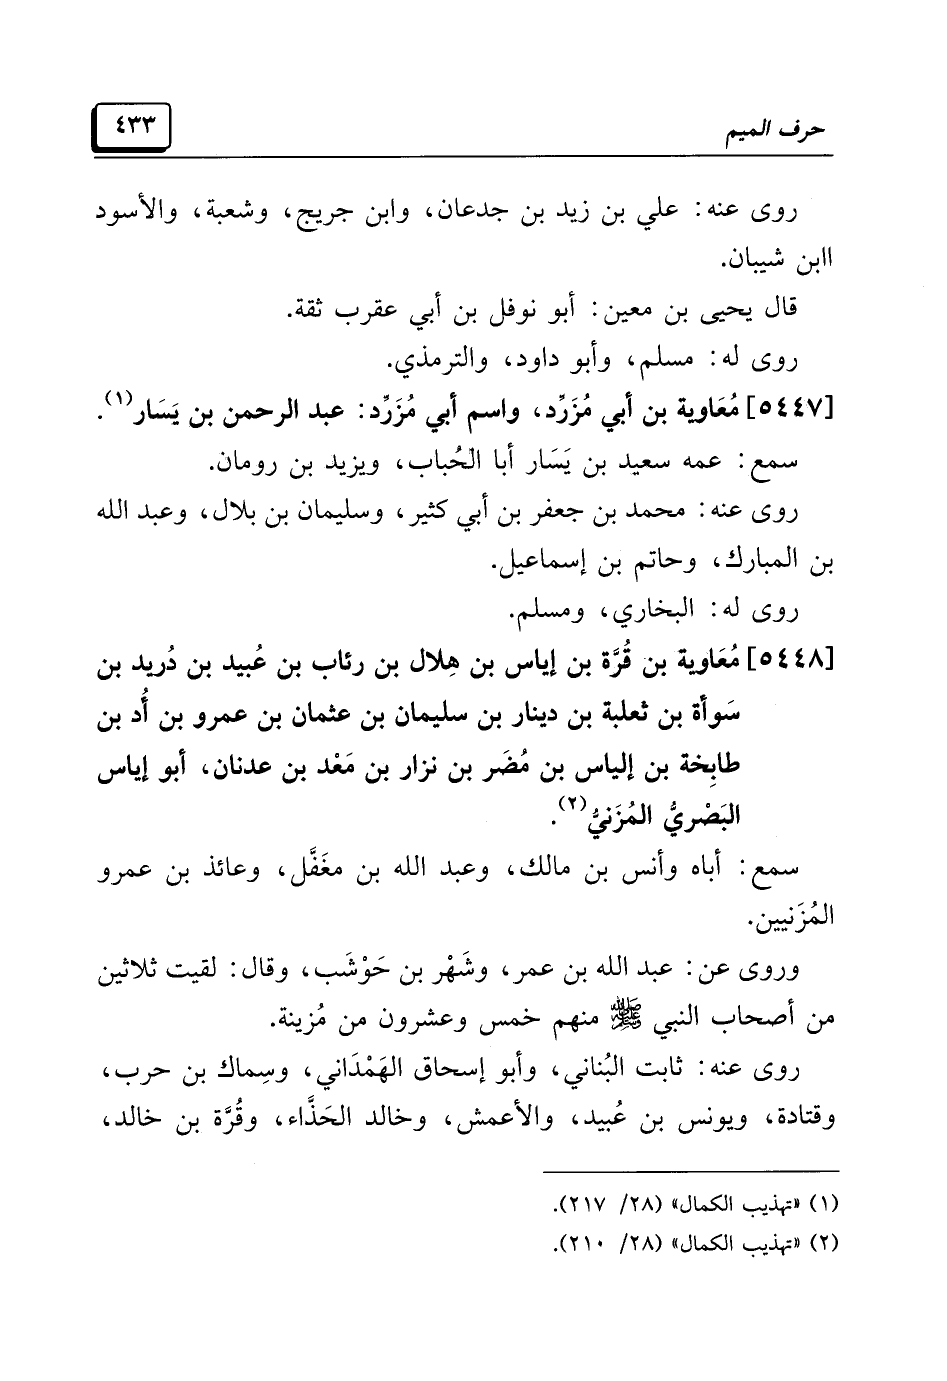 حرف الميم ٤٣٣
روى عنه: علي بن زيد بن جدعان، وابن جريج، وشعبة، والأسود
اابن شيبان.
قال يحيى بن معين: أبو نوفل بن أبي عقرب ثقة.
روى له: مسلم، وأبو داود، والترمذي.
[٥٤٤٧] مُعَاوية بن أبي مُزَرِّد، واسم أبي مُزَرِّد: عبد الرحمن بن يَسَار(١).
سمع: عمه سعيد بن يَسَار أبا الحُباب، ويزيد بن رومان.
روى عنه: محمد بن جعفر بن أبي كثير، وسليمان بن بلال، وعبد الله
بن المبارك، وحاتم بن إسماعيل.
روى له: البخاري، ومسلم.
[٥٤٤٨] مُعَاوية بن قُرَّة بن إياس بن هِلال بن رئاب بن عُبيد بن دُريد بن
سَوأة بن ثعلبة بن دينار بن سليمان بن عثمان بن عمرو بن أُد بن
طابِخة بن إلياس بن مُضَر بن نزار بن مَعْد بن عدنان، أبو إياس
البَصْريُّ المُزَنيُّ(٢).
سمع: أباه وأنس بن مالك، وعبد الله بن مغَفَّل، وعائذ بن عمرو
المُزَنيين.
وروى عن: عبد الله بن عمر، وشَهْر بن حَوْشَب، وقال: لقيت ثلاثين
من أصحاب النبي ﷺ منهم خمس وعشرون من مُزينة.
روى عنه: ثابت البُناني، وأبو إسحاق الهَمْدَاني، وسِماك بن حرب،
وقتادة، ويونس بن عُبيد، والأعمش، وخالد الحَذَّاء، وقُرَّة بن خالد،
(١) «تهذيب الكمال» (٢٨/ ٢١٧).
(٢) «تهذيب الكمال» (٢٨/ ٢١٠).